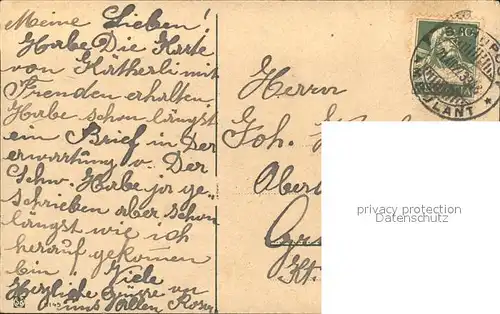 Meine Lieben!
Habe Die Karte
von Kätherli mit
Freuden erhalten
Habe schon längst
ein Brief in Der
erwartung v. Der
Schw. Habe ja ge-
schrieben aber schon
längst wie ich
herauf gekomen
bin. Viele
Herzliche Grüsse an
uns Allen Rosa
Herrn
Joh.
Ober
Kt.
LANT
privacy protection
Datenschutz